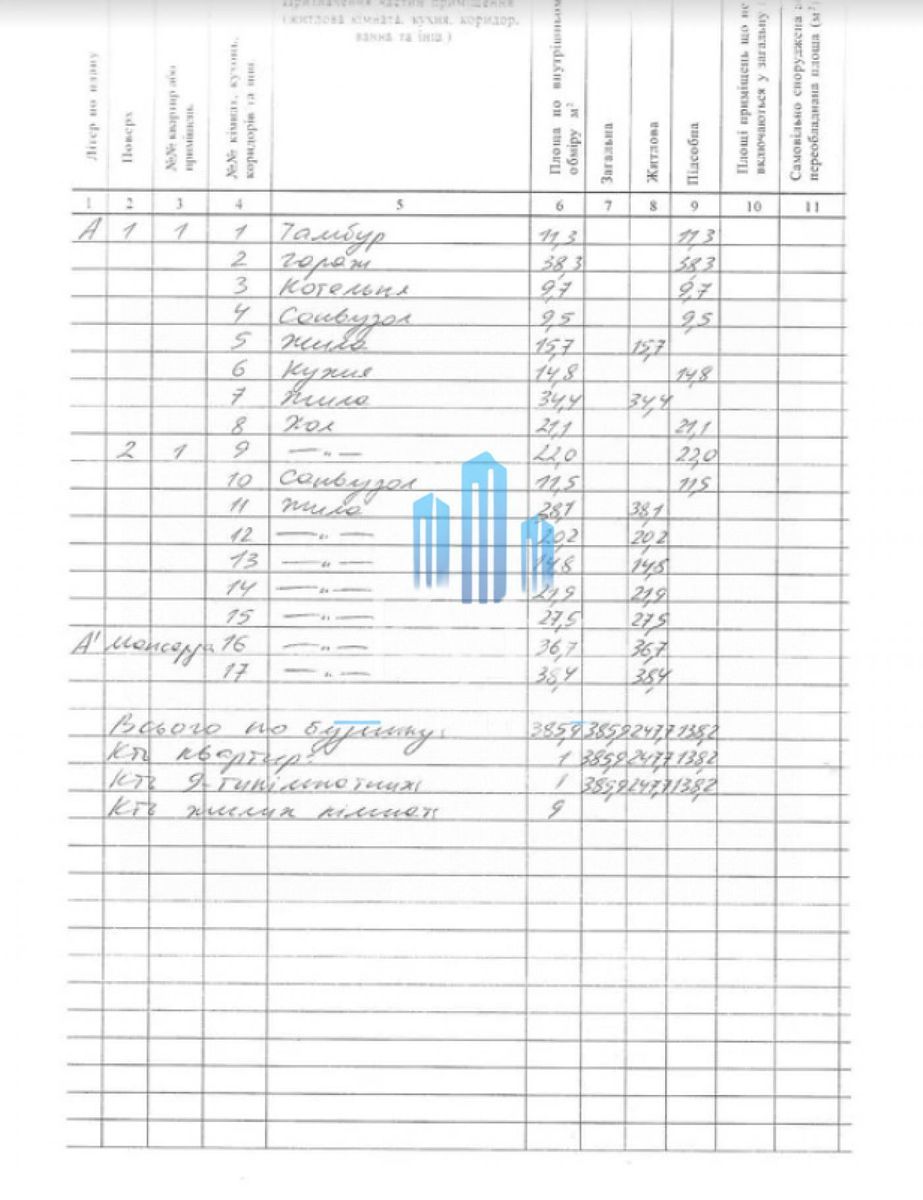 Призначення частин приміщення
(житлова кімната, кухня, коридор,
ванна та інш.)
Літер по плану
Поверх
№№ квартир або приміщень
№№ кімнат, кухонь, коридорів та інш.
Площа по внутрішньому обміру м²
Загальна
Житлова
Підсобна
Площі приміщень що не включаються у загальну
Самовільно споруджена переобладнана площа (м²)
1 2 3 4 5 6 7 8 9 10 11
А 1 1 1 Тамбур 11,3 11,3
2 Гараж 38,3 38,3
3 Котельня 9,7 9,7
4 Санвузол 9,5 9,5
5 Жила 15,7 15,7
6 Кухня 14,8 14,8
7 Жила 34,4 34,4
8 Хол 21,1 21,1
2 1 9 —„— 22,0 22,0
10 Санвузол 11,5 11,5
11 Жила 38,1 38,1
12 —„— 20,2 20,2
13 —„— 14,8 14,8
14 —„— 21,9 21,9
15 —„— 27,5 27,5
А' мансарда 16 —„— 36,7 36,7
17 —„— 38,4 38,4
Всього по будинку: 385,9 385,9 247,7 138,2
Кть квартир: 1 385,9 247,7 138,2
Кть 9-тикімнатних 1 385,9 247,7 138,2
Кть жилих кімнат: 9